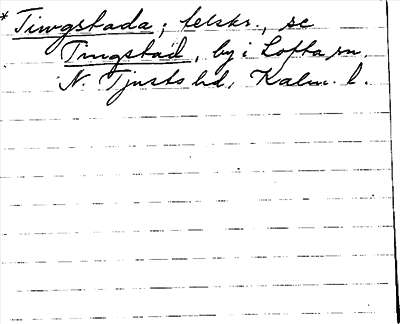 * Tingstada; telskr., se
Tingstad, by i Lofta sn.
N. Tjusts hd, Kalm. l.